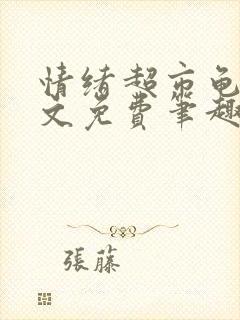 情绪超市龟
文免费笔趣
張藤